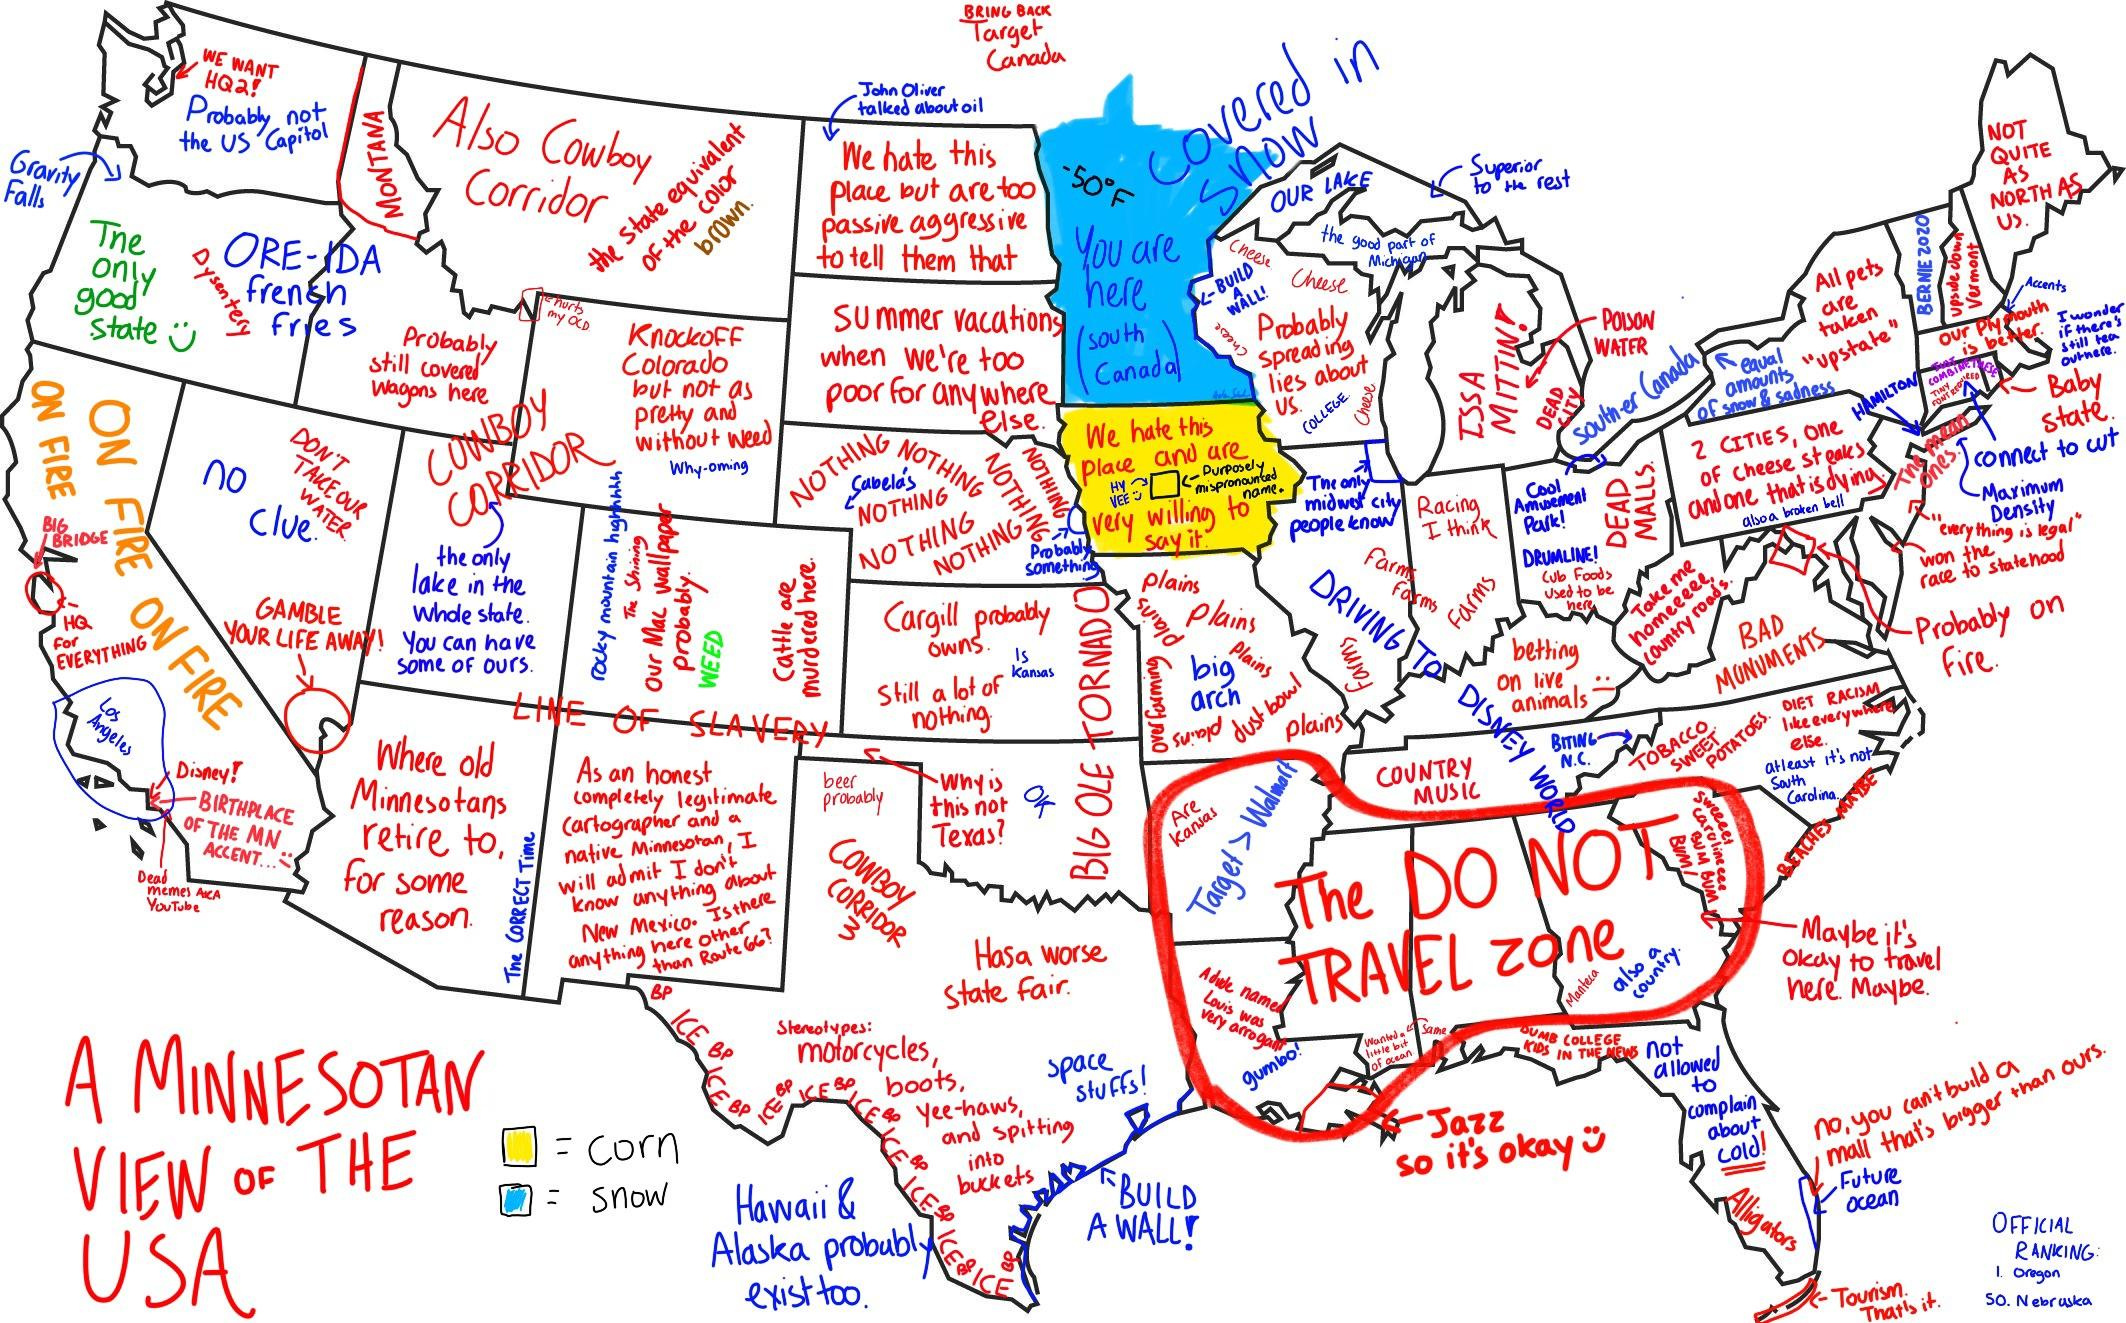 BRING BACK
Target
Canada
WE WANT
HQ2!
Probably not
the US Capitol
Gravity
Falls
The
only
good
state
Dysentery
ORE-IDA
french
fries
MONTANA
Also Cowboy
Corridor
the state equivalent
of the color
brown.
hurts
my OCD
Probably
still covered
wagons here
COWBOY
CORRIDOR
Knockoff
Colorado
but not as
pretty and
without weed
Why-oming
John Oliver
talked about oil
We hate this
place but are too
passive aggressive
to tell them that
Summer vacations
when we're too
poor for anywhere
else.
NOTHING NOTHING
NOTHING
NOTHING
NOTHING
NOTHING
NOTHING
Cabela's
Probably
something
-50°F
Covered in
snow
You are
here
(south
Canada)
We hate this
place and are
HY
VEE
Purposely
mispronounced
name.
very willing to
say it.
OUR LAKE
Superior
to the rest
the good part of
Michigan
Cheese
Cheese
Cheese
Cheese
BUILD
A
WALL!
Probably
spreading
lies about
us.
COLLEGE.
ISSA
MITTIN!
POISON
WATER
DEAD
CITY
souther Canada
equal
amounts
of snow & sadness
All pets
are
taken
"upstate"
BERNIE 2020
upside down
Vermont
NOT
QUITE
AS
NORTH AS
US.
Accents
our Plymouth
is better.
I wonder
if there's
still tea
out here.
Baby
State.
connect to cut
HAMILTON
The mean
ones.
Maximum
Density
"everything is legal"
won the
race to statehood
2 CITIES, one
of cheese steaks
and one that is dying
also a broken bell
Probably on
fire.
ON FIRE
ON FIRE
ON FIRE
BIG
BRIDGE
HQ
for
EVERYTHING
Los
Angeles
Disney!
BIRTHPLACE
OF THE MN
ACCENT...
Dead
memes AKA
YouTube
no
clue.
DON'T
TAKE OUR
WATER
GAMBLE
YOUR LIFE AWAY!
the only
lake in the
whole state.
You can have
some of ours.
rocky mountain highhhhh
The Shining
our Mac wallpaper
probably.
WEED
Cattle are
murdered here.
Cargill probably
owns.
Is
Kansas
Still a lot of
nothing.
BIG OLE TORNADO
plains
plains
plains
plains
big
arch
overfarming
plains
dust bowl
plains
The only
midwest city
people know
DRIVING TO
DISNEY WORLD
Racing
I think
Farms
Farms
Farms
Farms
Cool
Amusement
Park!
DRUMLINE!
Cub Foods
used to be
here
DEAD
MALLS.
Take me
homeeeee,
country roads.
betting
on live
animals
BAD
MONUMENTS
LINE OF SLAVERY
Where old
Minnesotans
retire to,
for some
reason.
The CORRECT Time
As an honest
completely legitimate
cartographer and a
native Minnesotan, I
will admit I don't
know anything about
New Mexico. Is there
anything here other
than Route 66?
beer
probably
Why is
this not
Texas?
OK
COWBOY
CORRIDOR
3
Has a worse
state fair.
Stereotypes:
motorcycles,
boots,
yee-haws,
and spitting
into
buckets
BP
ICE BP
ICE BP
ICE BP ICE BP
ICE BP
ICE BP
ICE BP
ICE BP
ICE BP
space
stuffs!
BUILD
A WALL!
Are
Kansas
Target > Walmart
COUNTRY
MUSIC
BITING
N.C.
TOBACCO
SWEET
POTATOES.
DIET RACISM
like everywhere
else.
at least it's not
South
Carolina.
BEACHES MAYBE
sweeeet
carolineeee
BUM BUM
BUM!
The DO NOT
TRAVEL zone
Manteca
also a
country.
Maybe it's
okay to travel
here. Maybe.
A dude named
Louis was
very arrogant
gumbo!
Wanted a
little bit
of ocean
Same
Jazz
so it's okay
DUMB COLLEGE
KIDS IN THE NEWS
not
allowed
to
complain
about
cold!
Alligators
no, you can't build a
mall that's bigger than ours.
Future
ocean
Tourism.
That's it.
A MINNESOTAN
VIEW OF THE
USA
= corn
= snow
Hawaii &
Alaska probably
exist too.
OFFICIAL
RANKING:
1. Oregon
50. Nebraska